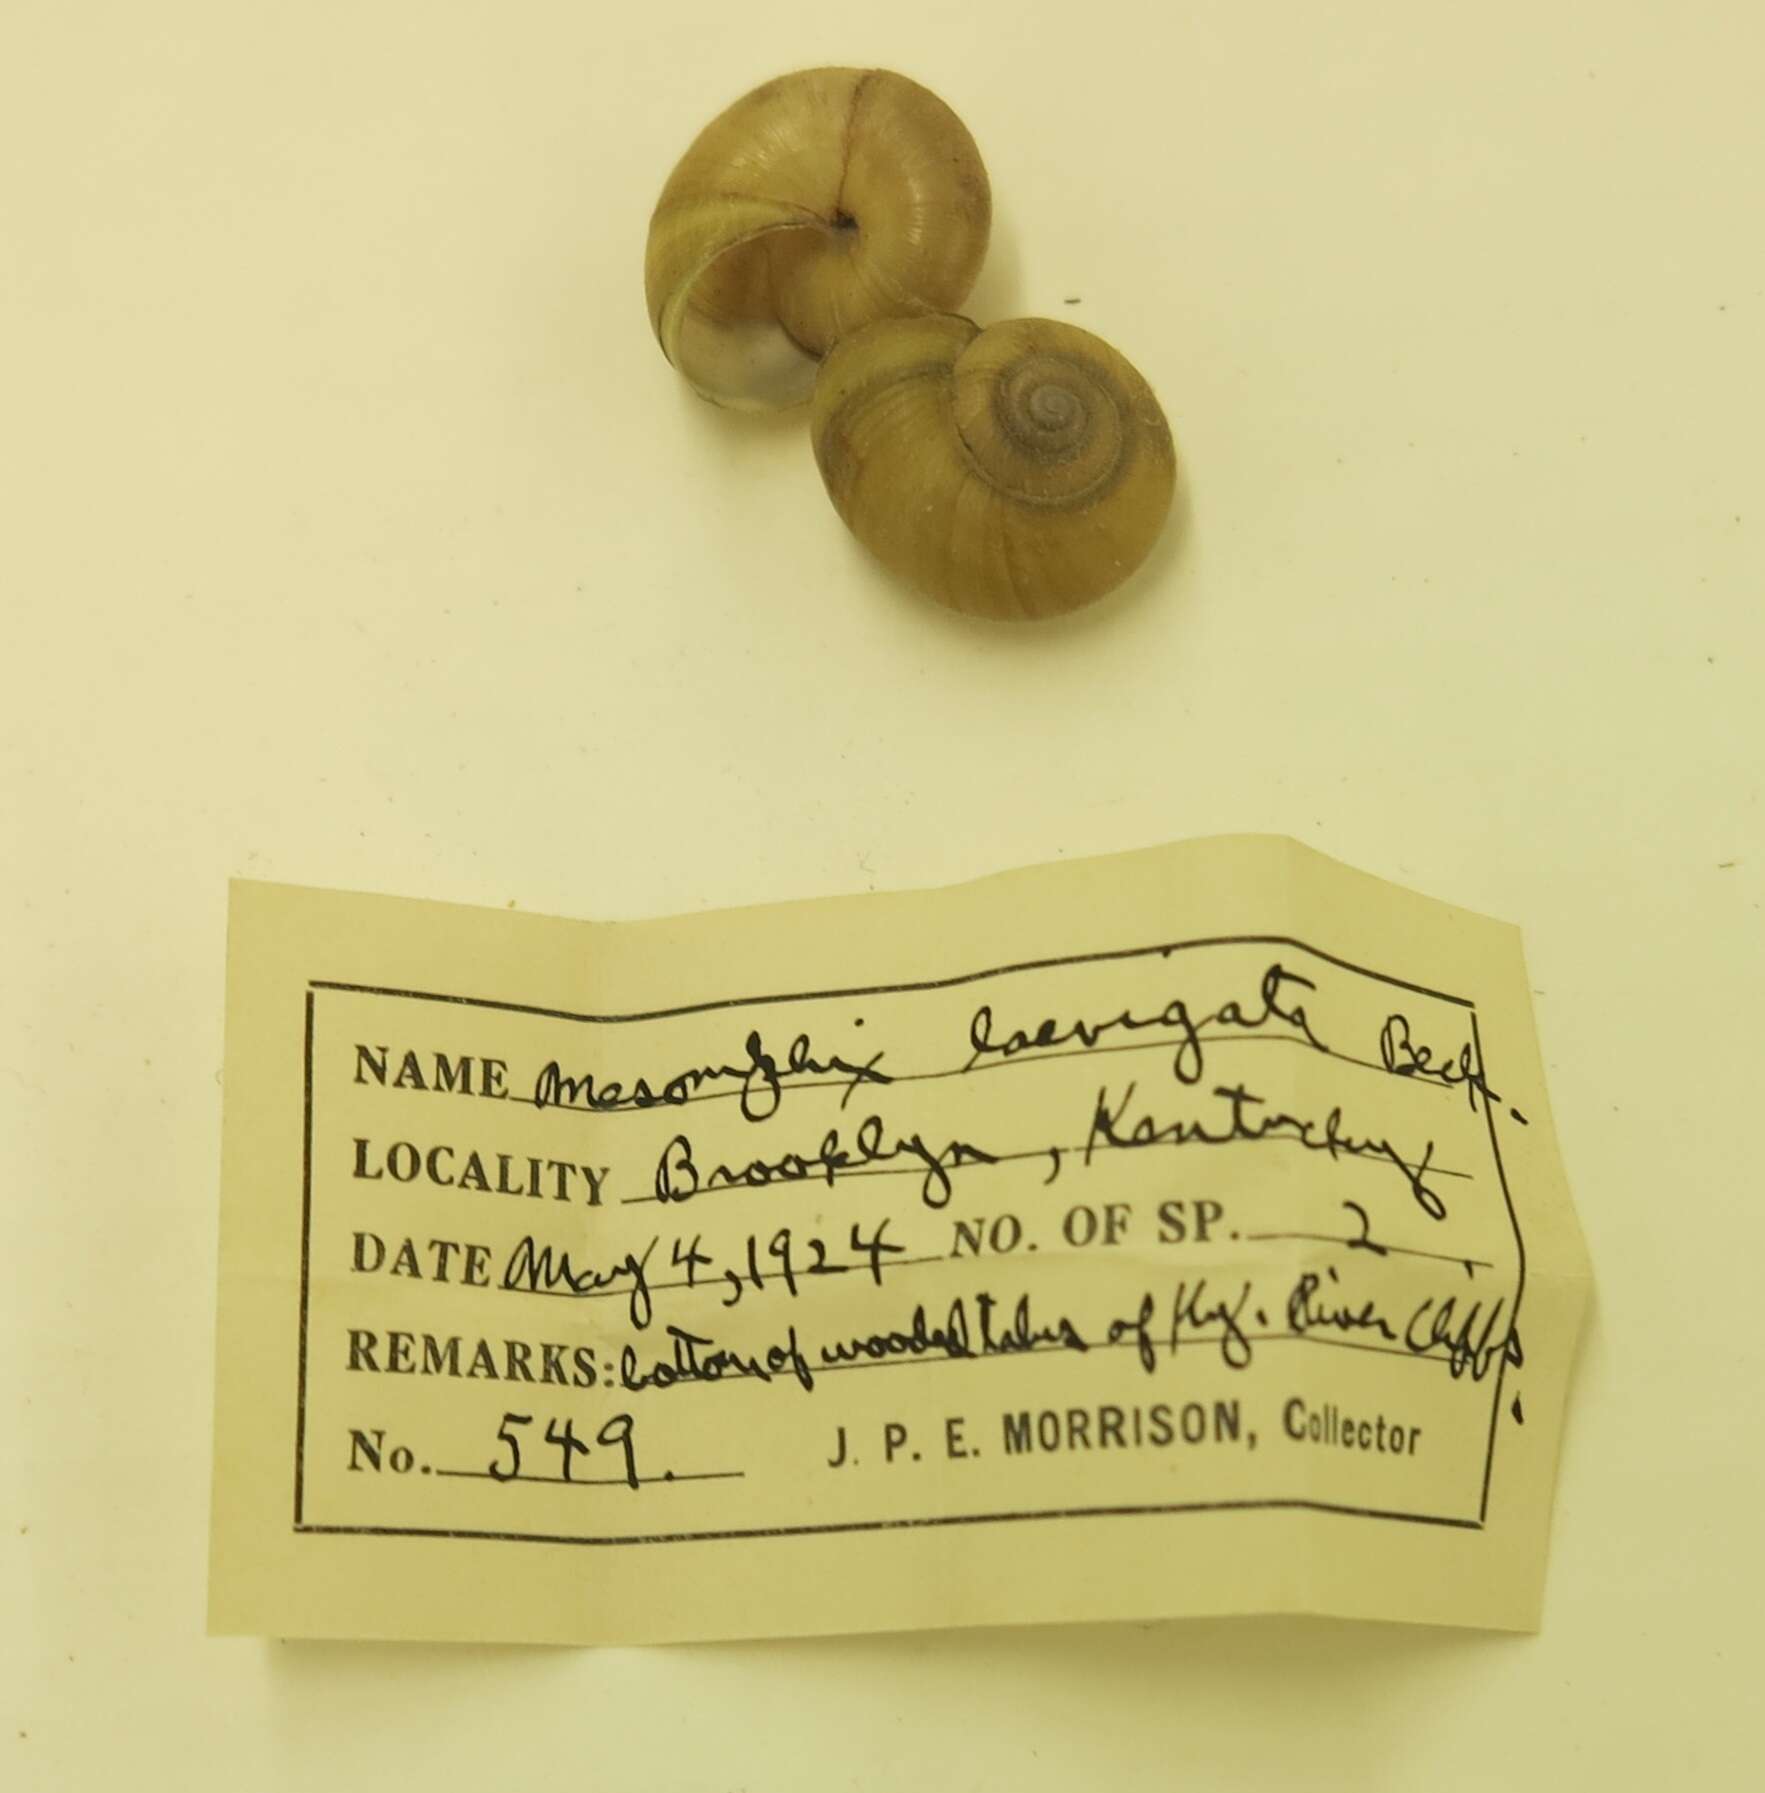 NAME Mesomphix laevigata Beck.
LOCALITY Brooklyn, Kentucky
DATE May 4, 1924 NO. OF SP. 2.
REMARKS: bottom of wooded talus of Ky. River Cliffs.
No. 549. J. P. E. MORRISON, Collector